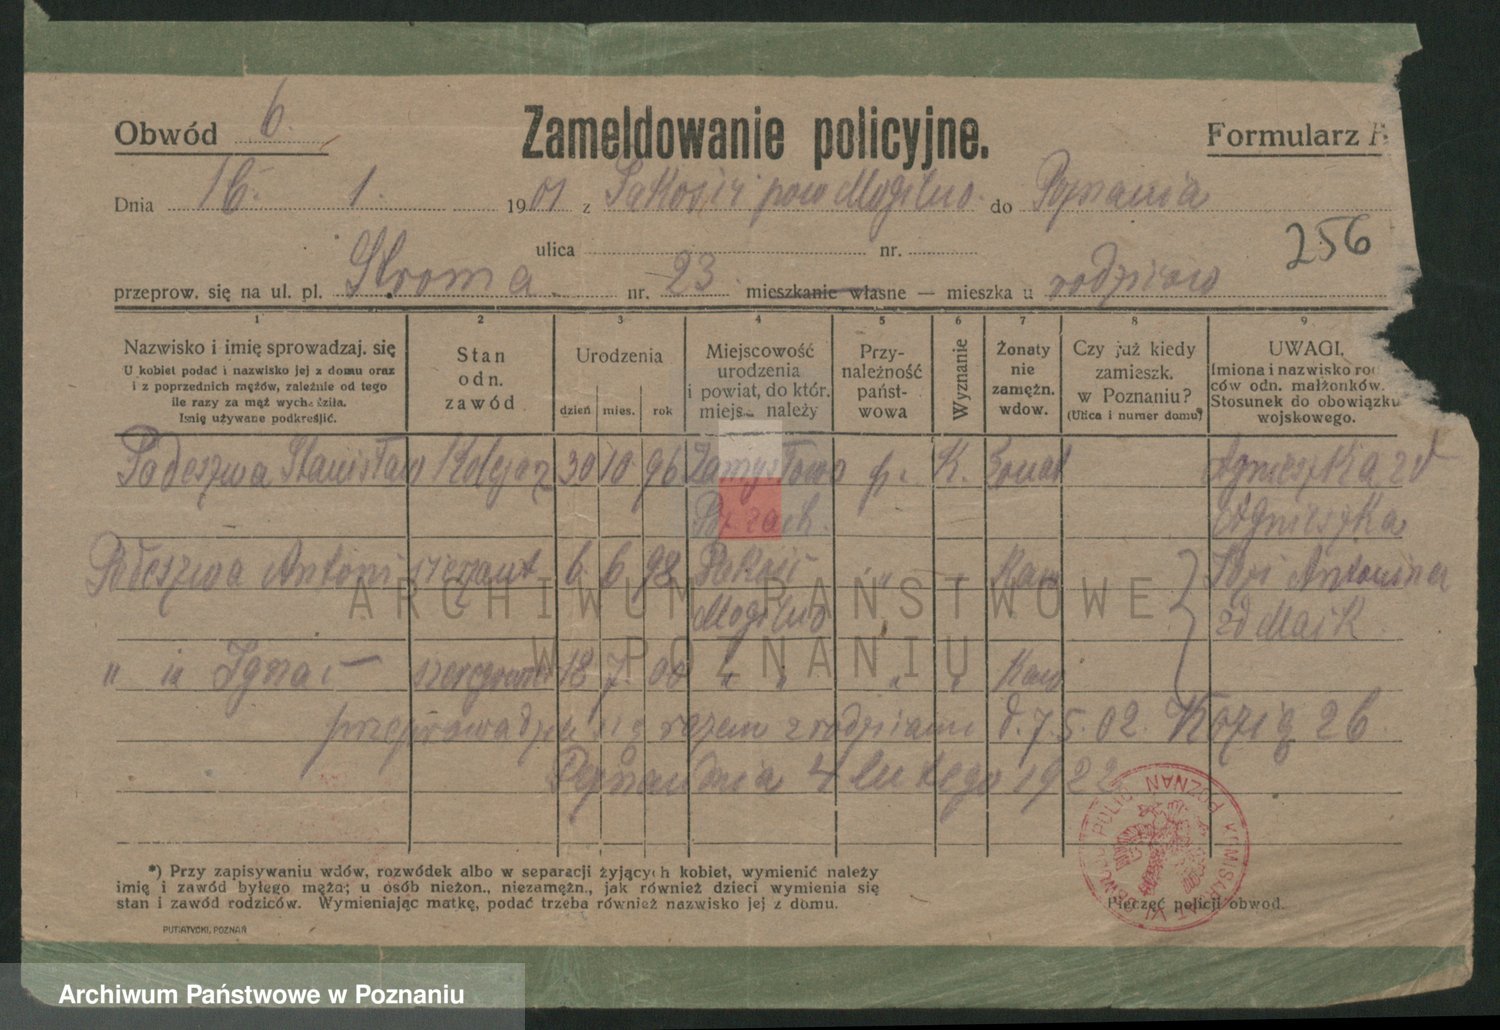 Obwód 6.
Zameldowanie policyjne.
Formularz
Dnia 16. 1. 1901 z Pakości pow Mogilno. do Poznania
256
ulica nr.
przeprow. się na ul. pl. Stroma nr. 23. mieszkanie własne — mieszka u rodziców
1 2 3 4 5 6 7 8 9
Nazwisko i imię sprowadzaj. się
U kobiet podać i nazwisko jej z domu oraz
i z poprzednich mężów, zależnie od tego
ile razy za mąż wychodziła.
Imię używane podkreślić.
Stan
odn.
zawód
Urodzenia
dzień mies. rok
Miejscowość
urodzenia
i powiat, do któr.
miejsc. należy
Przy-
należność
państ-
wowa
Wyznanie
Żonaty
nie
zamężn.
wdow.
Czy już kiedy
zamieszk.
w Poznaniu?
(Ulica i numer domu?
UWAGI.
Imiona i nazwisko ro
ców odn. małżonków.
Stosunek do obowiązku
wojskowego.
Podeszwa Stanisław Kolejarz 30 10 96 p. K. żonat Agnieszka zd
Podeszwa Antoni sierżant 6 6 98 Pakość " Kaw Antonina
Mogilno zd Maik
" " Ignac 18 7. 00 " " " " Kaw
się razem z rodzicami d. 7.5.02. Kozią 26.
Poznań dnia 4 lutego 1922
KOMISARJAT VI OBWODU POLICJI POZNAŃ
*) Przy zapisywaniu wdów, rozwódek albo w separacji żyjących kobiet, wymienić należy
imię i zawód byłego męża; u osób nieżon., niezamężn., jak również dzieci wymienia się
stan i zawód rodziców. Wymieniając matkę, podać trzeba również nazwisko jej z domu.
Pieczęć policji obwod.
PUTIATYCKI, POZNAŃ
ARCHIWUM PAŃSTWOWE
W POZNANIU
Archiwum Państwowe w Poznaniu